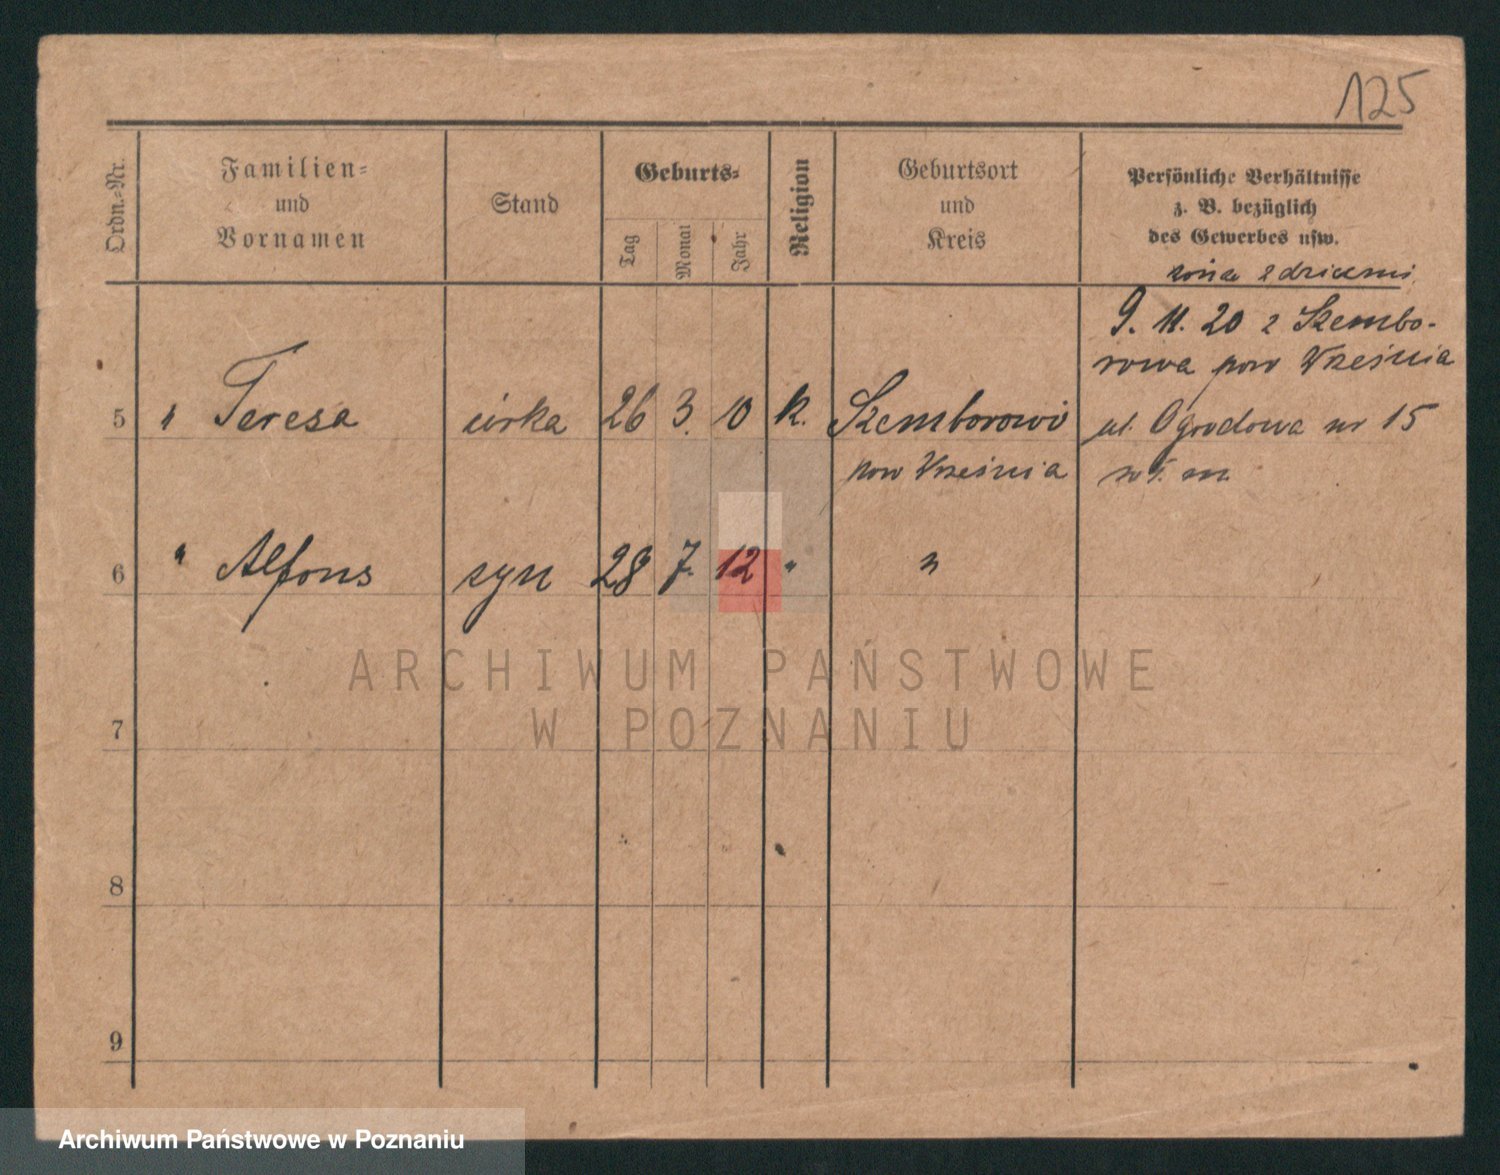 125
Ordn.-Nr.
Familien-
und
Vornamen
Stand
Geburts-
Tag
Monat
Jahr
Religion
Geburtsort
und
Kreis
Persönliche Verhältnisse
z. B. bezüglich
des Gewerbes usw.
żona z dziećmi
9. 11. 20 z Szembo-
rowa pow Września
5 " Teresa córka 26 3. 10 k. Szemborowo ul. Ogrodowa nr 15
pow Września
6 " Alfons syn 28 7. 12 " "
7
8
9
ARCHIWUM PAŃSTWOWE
W POZNANIU
Archiwum Państwowe w Poznaniu